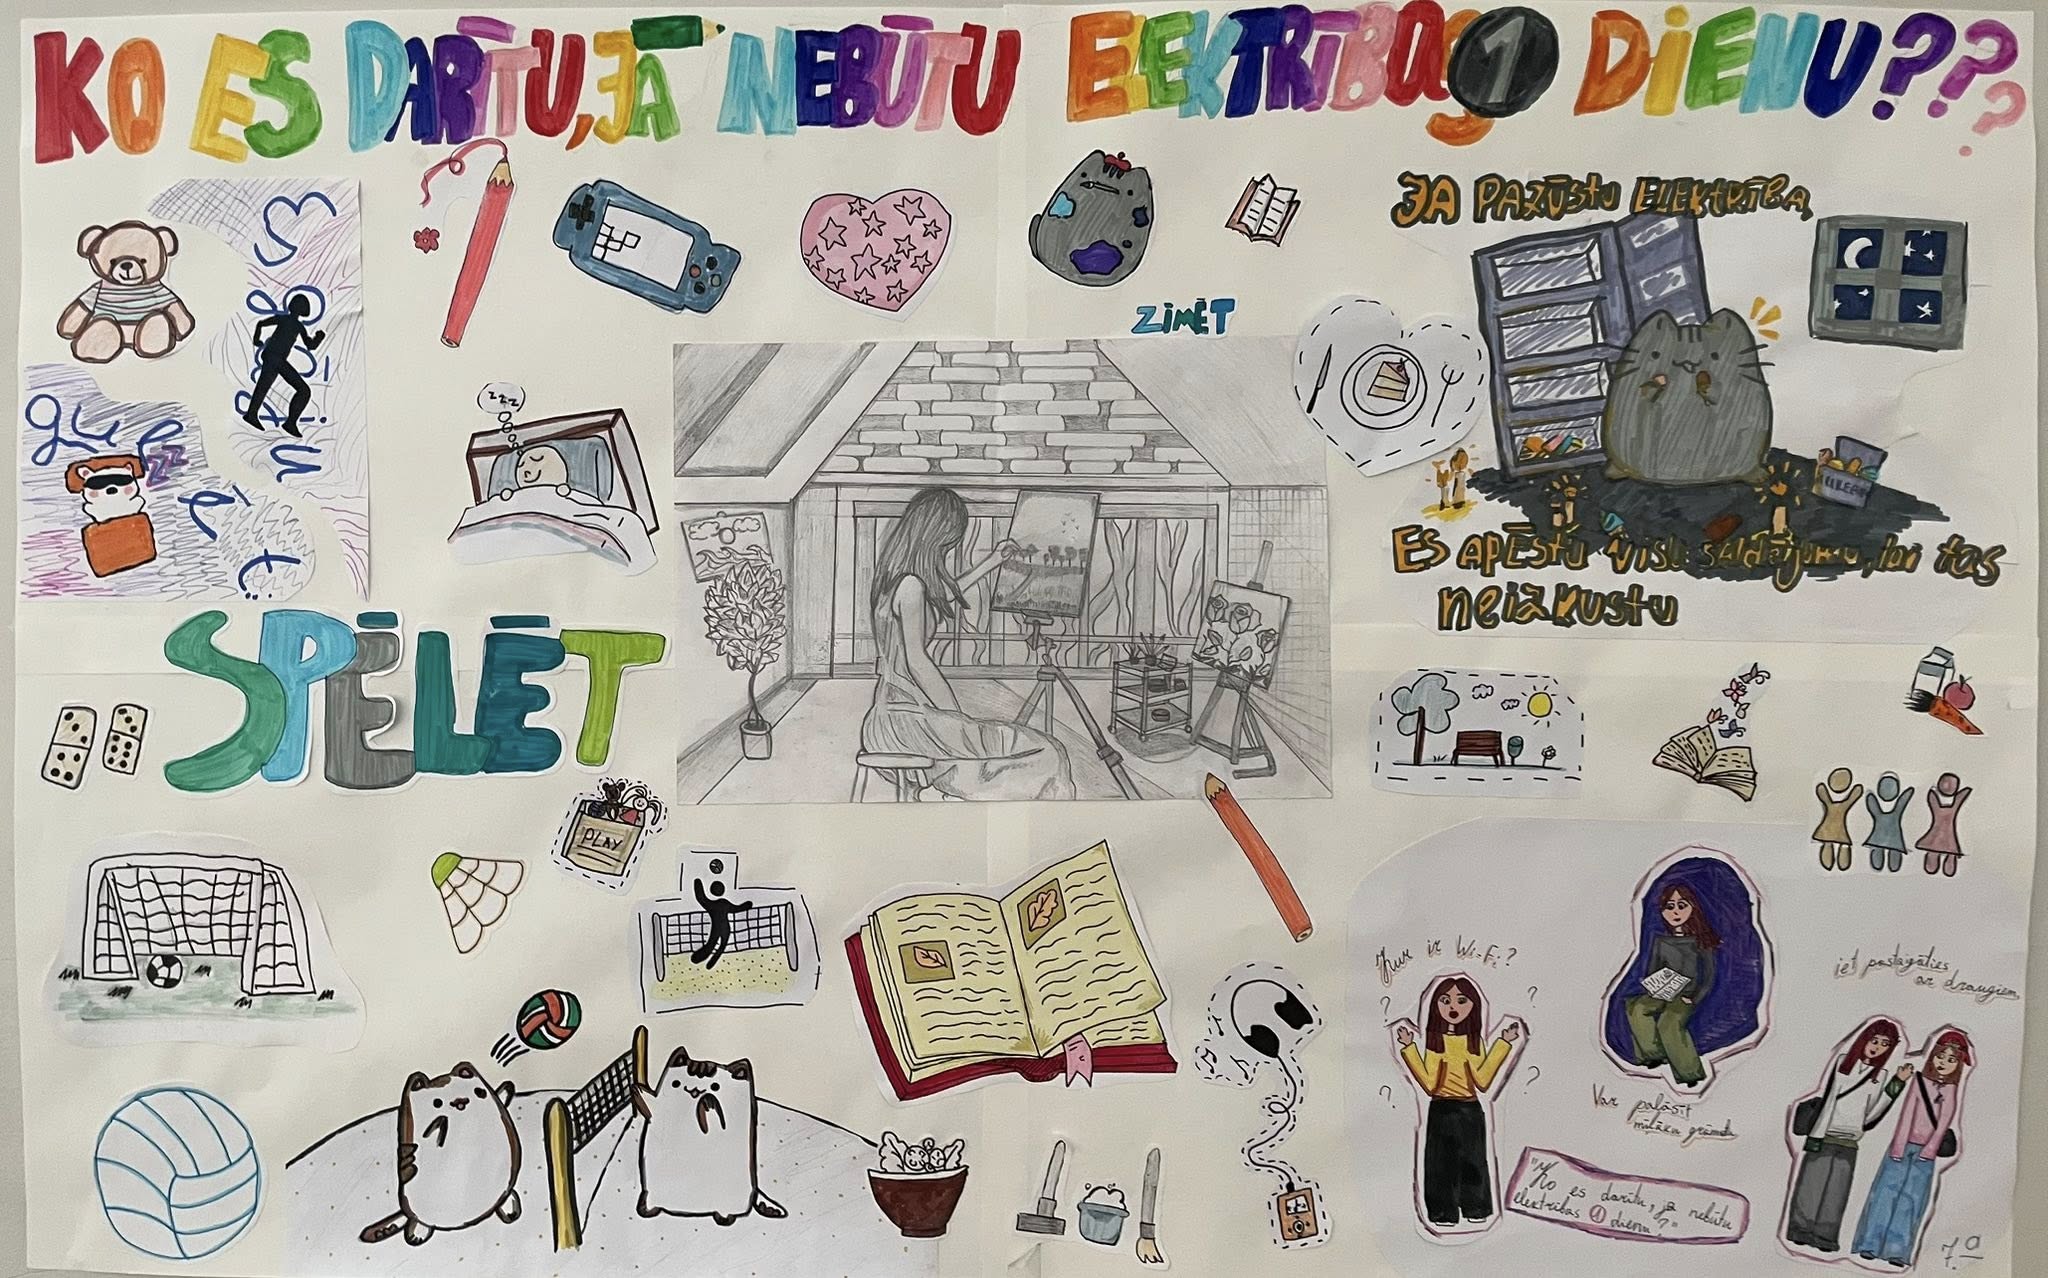 KO ES DARĪTU, JA NEBŪTU ELEKTRĪBAS 1 DIENU???
JA PAZŪSTU ELEKTRĪBA,
ZĪMĒT
gulēt
zzz
zz
ES APĒSTU VISU SALDĒJUMU, lai tas
neizkustu
SPĒLĒT
PLAY
Kur ir Wi-Fi?
? ? ? ?
iet pastaigāties
ar draugiem
Var palasīt
mīļāko grāmatu
"Ko es darītu, ja nebūtu
elektrības 1 dienu?"
7.a